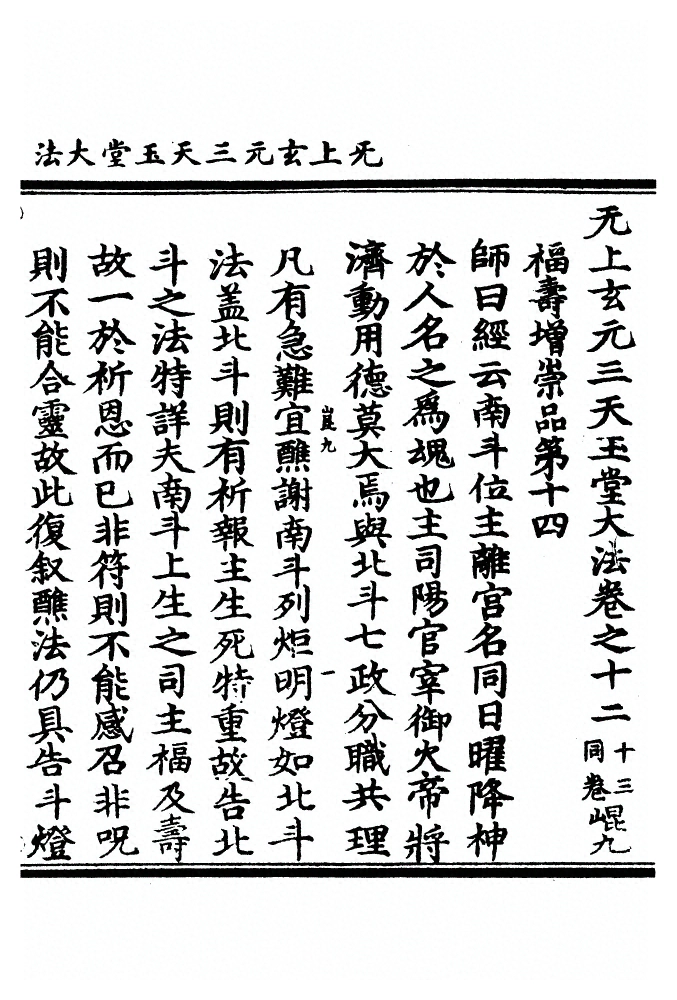 法大堂玉天三元玄上无
无上玄元三天玉堂大法卷之十二 十三同卷 崐九
福壽增崇品第十四
師曰經云南斗位主離宮名同日曜降神
於人名之爲魂也主司陽官宰御火帝將
濟動用德莫大焉與北斗七政分職共理
崐九 一
凡有急難宜醮謝南斗列炬明燈如北斗
法盖北斗則有祈報主生死特重故告北
斗之法特詳夫南斗上生之司主福及壽
故一於祈恩而已非符則不能感召非呪
則不能合靈故此復叙醮法仍具告斗燈